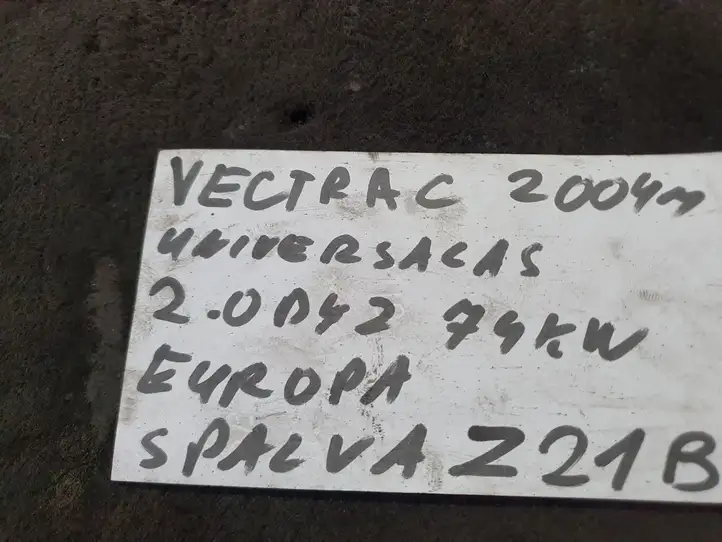 VECTRA C 2004m
UNIVERSALAS
2.0 DYZ 74KW
EUROPA
SPALVA Z21B